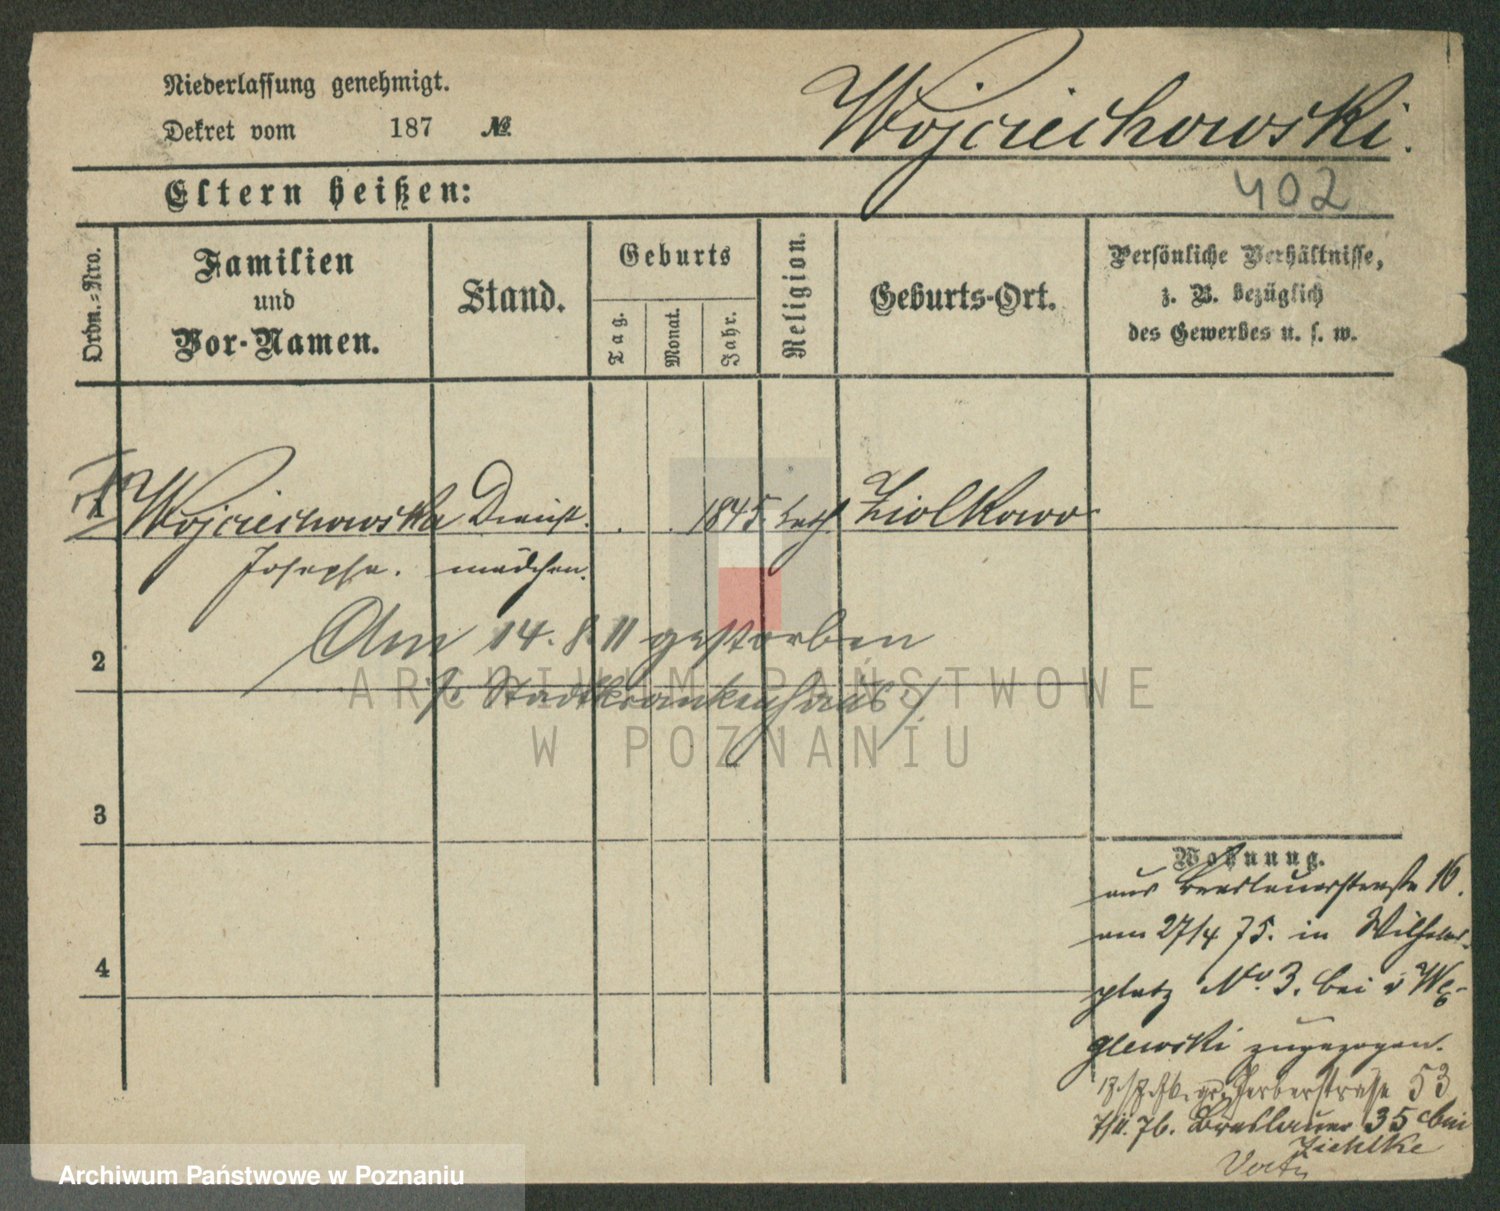 Niederlassung genehmigt.
Dekret vom 187 №
Wojciechowski.
402
Eltern heißen:
Ordn.-Nro.
Familien
und
Vor-Namen.
Stand.
Geburts
Tag.
Monat.
Jahr.
Religion.
Geburts-Ort.
Persönliche Verhältnisse,
z. B. bezüglich
des Gewerbes u. s. w.
1 Wojciechowska Dienst- . . 1845. kath. Ziolkowo
Josepha. mädchen.
Am 14.8.11 gestorben
2
/: Stadtkrankenhaus :/
3
4
Wohnung.
aus Breslauerstraße 16.
am 27/4 75. in Wilhelms-
platz No. 3. bei v We-
glewski zugezogen.
Gerberstraße 53
7/11. 76. Breslauer 35 bei
Ziehlke
ARCHIWUM PAŃSTWOWE
W POZNANIU
Archiwum Państwowe w Poznaniu